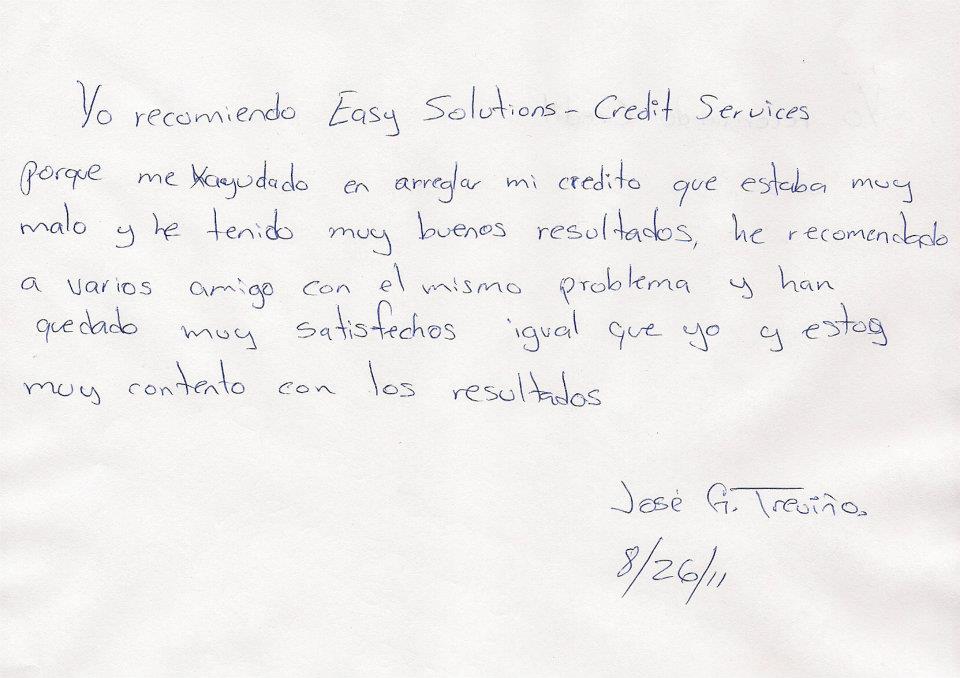 Yo recomiendo Easy Solutions - Credit Services
porque me ayudado en arreglar mi credito que estaba muy
malo y he tenido muy buenos resultados, he recomendado
a varios amigo con el mismo problema y han
quedado muy satisfechos igual que yo y estoy
muy contento con los resultados
José G. Treviño.
8/26/11